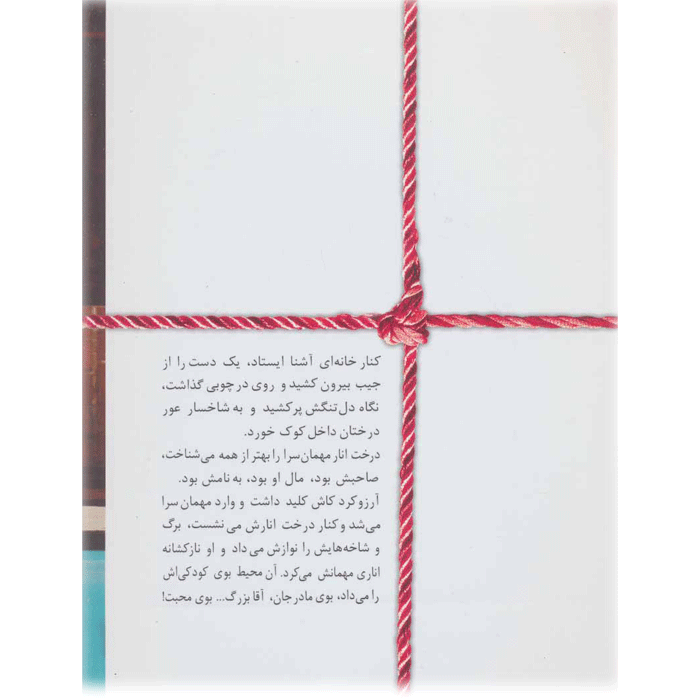 کنار خانه‌ای آشنا ایستاد، یک دست را از
جیب بیرون کشید و روی در چوبی گذاشت،
نگاه دل‌تنگش پر کشید و به شاخسار عور
درختان داخل کوک خورد.
درخت انار مهمان‌سرا را بهتر از همه می‌شناخت،
صاحبش بود، مال او بود، به نامش بود.
آرزو کرد کاش کلید داشت و وارد مهمان سرا
می‌شد و کنار درخت انارش می‌نشست، برگ
و شاخه‌هایش را نوازش می‌داد و او نازکشانه
اناری مهمانش می‌کرد. آن محیط بوی کودکی‌اش
را می‌داد، بوی مادرجان، آقا بزرگ... بوی محبت!